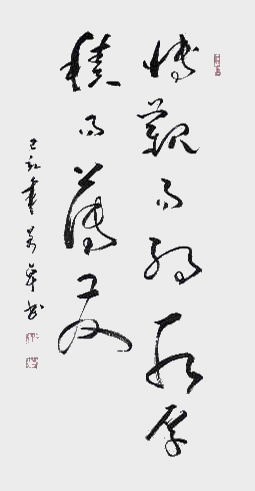 博觀而約取厚
積而薄發
己亥年書